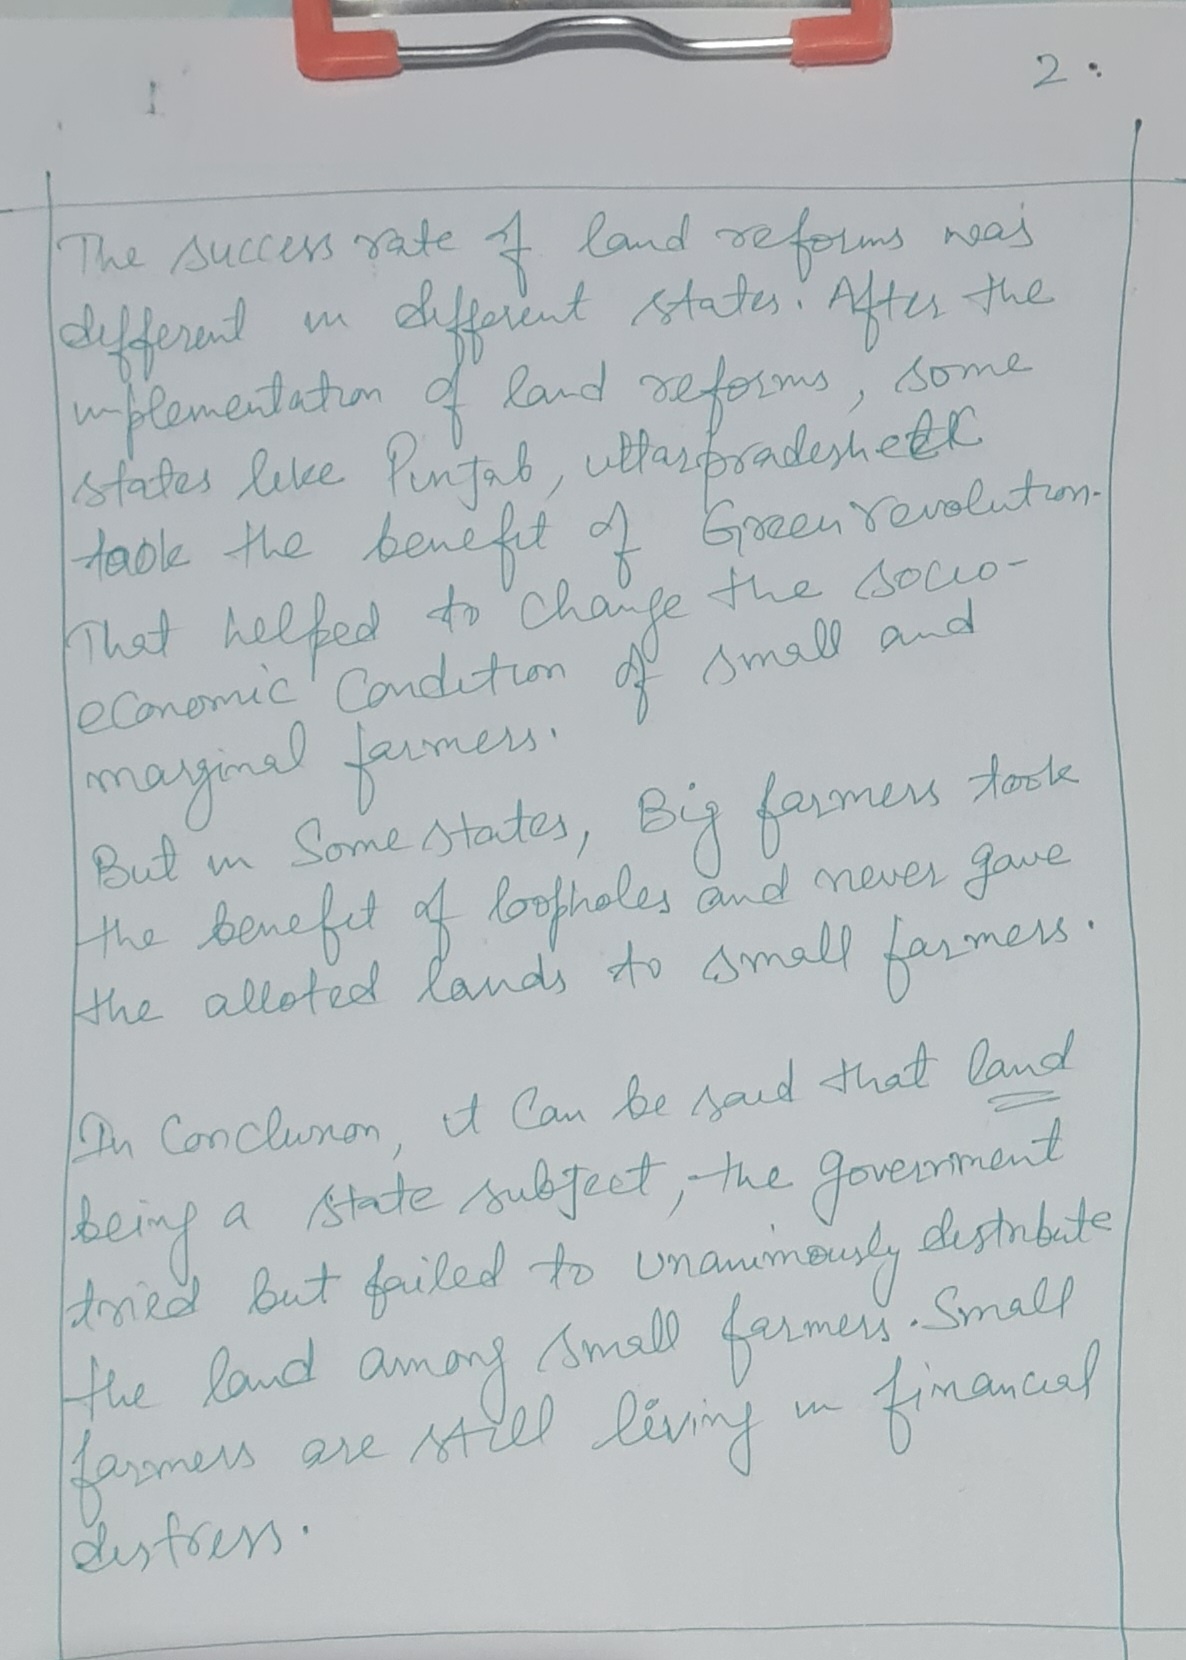 2.
The success rate of land reforms was
different in different states. After the
implementation of land reforms, some
states like Punjab, uttarpradesh etc
took the benefit of Green revolution.
That helped to change the socio-
economic condition of small and
marginal farmers.
But in Some states, Big farmers took
the benefit of loopholes and never gave
the alloted lands to small farmers.
In Conclusion, it Can be said that land
being a state subject, the government
tried but failed to unanimously distribute
the land among small farmers. Small
farmers are still living in financial
distress.